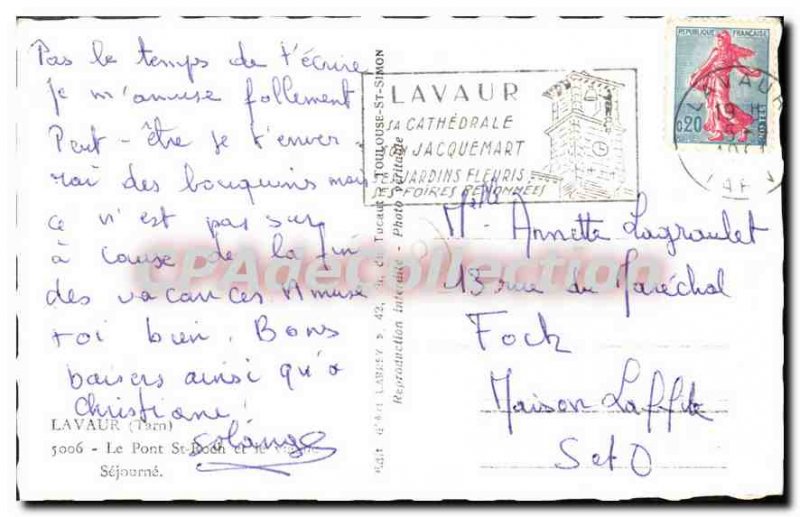 Pas le temps de t'écrire
Je m'amuse follement
Peut-être je t'enver-
rai des bouquins mais
ce n'est pas sur
à cause de la fin
des vacances Amuse
toi bien. Bons
baisers ainsi qu'à
Christiane!
Solange
LAVAUR (Tarn)
5006 - Le Pont St-Roch et le
Séjourné.
TOULOUSE-ST-SIMON
Reproduction Interdite - Photo véritable
LAVAUR
SA CATHÉDRALE
SON JACQUEMART
SES JARDINS FLEURIS
SES FOIRES RENOMMÉES
REPUBLIQUE FRANÇAISE
0,20
POSTES
LAVAUR
19 H
Mlle Annette Lagraulet
13 rue du Maréchal
Foch
Maison Laffite
S et O
CPAdeCollection